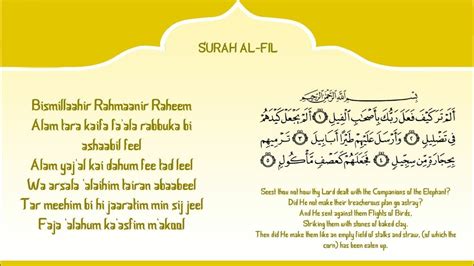 SURAH AL-FIL
Bismillaahir Rahmaanir Raheem
Alam tara kaifa fa'ala rabbuka bi
ashaabil feel
Alam yaj'al kai dahum fee tad leel
Wa arsala 'alaihim tairan abaabeel
Tar meehim bi hi jaaratim min sij jeel
Faja 'alahum ka'asfim m'akool
بِسْمِ اللَّهِ الرَّحْمَٰنِ الرَّحِيمِ
أَلَمْ تَرَ كَيْفَ فَعَلَ رَبُّكَ بِأَصْحَابِ الْفِيلِ ١ أَلَمْ يَجْعَلْ كَيْدَهُمْ
فِي تَضْلِيلٍ ٢ وَأَرْسَلَ عَلَيْهِمْ طَيْرًا أَبَابِيلَ ٣ تَرْمِيهِم
بِحِجَارَةٍ مِّن سِجِّيلٍ ٤ فَجَعَلَهُمْ كَعَصْفٍ مَّأْكُولٍ ٥
Seest thou not how thy Lord dealt with the Companions of the Elephant?
Did He not make their treacherous plan go astray?
And He sent against them Flights of Birds,
Striking them with stones of baked clay.
Then did He make them like an empty field of stalks and straw, (of which the
corn) has been eaten up.